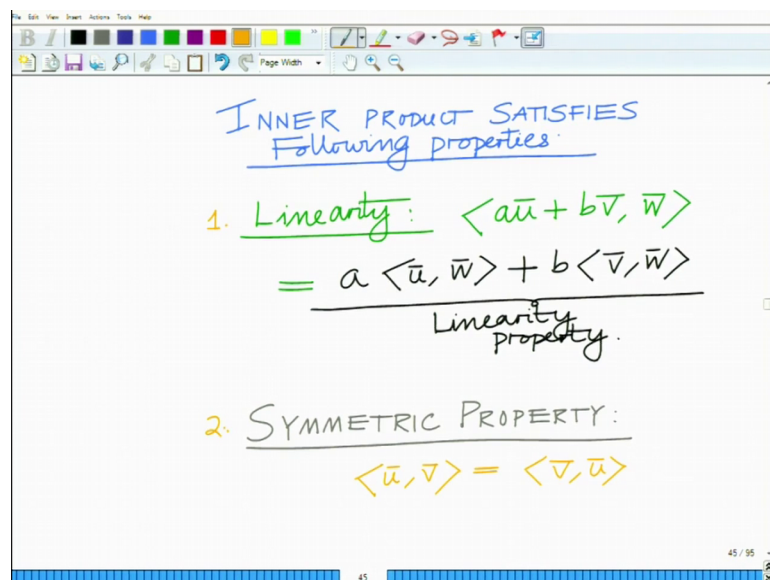 File Edit View Insert Actions Tools Help
B I
Page Width
INNER PRODUCT SATISFIES
Following properties.
1. Linearity: <aū + bv̄, w̄>
= a <ū, w̄> + b <v̄, w̄>
Linearity
property.
2. SYMMETRIC PROPERTY:
<ū, v̄> = <v̄, ū>
45 / 95
45